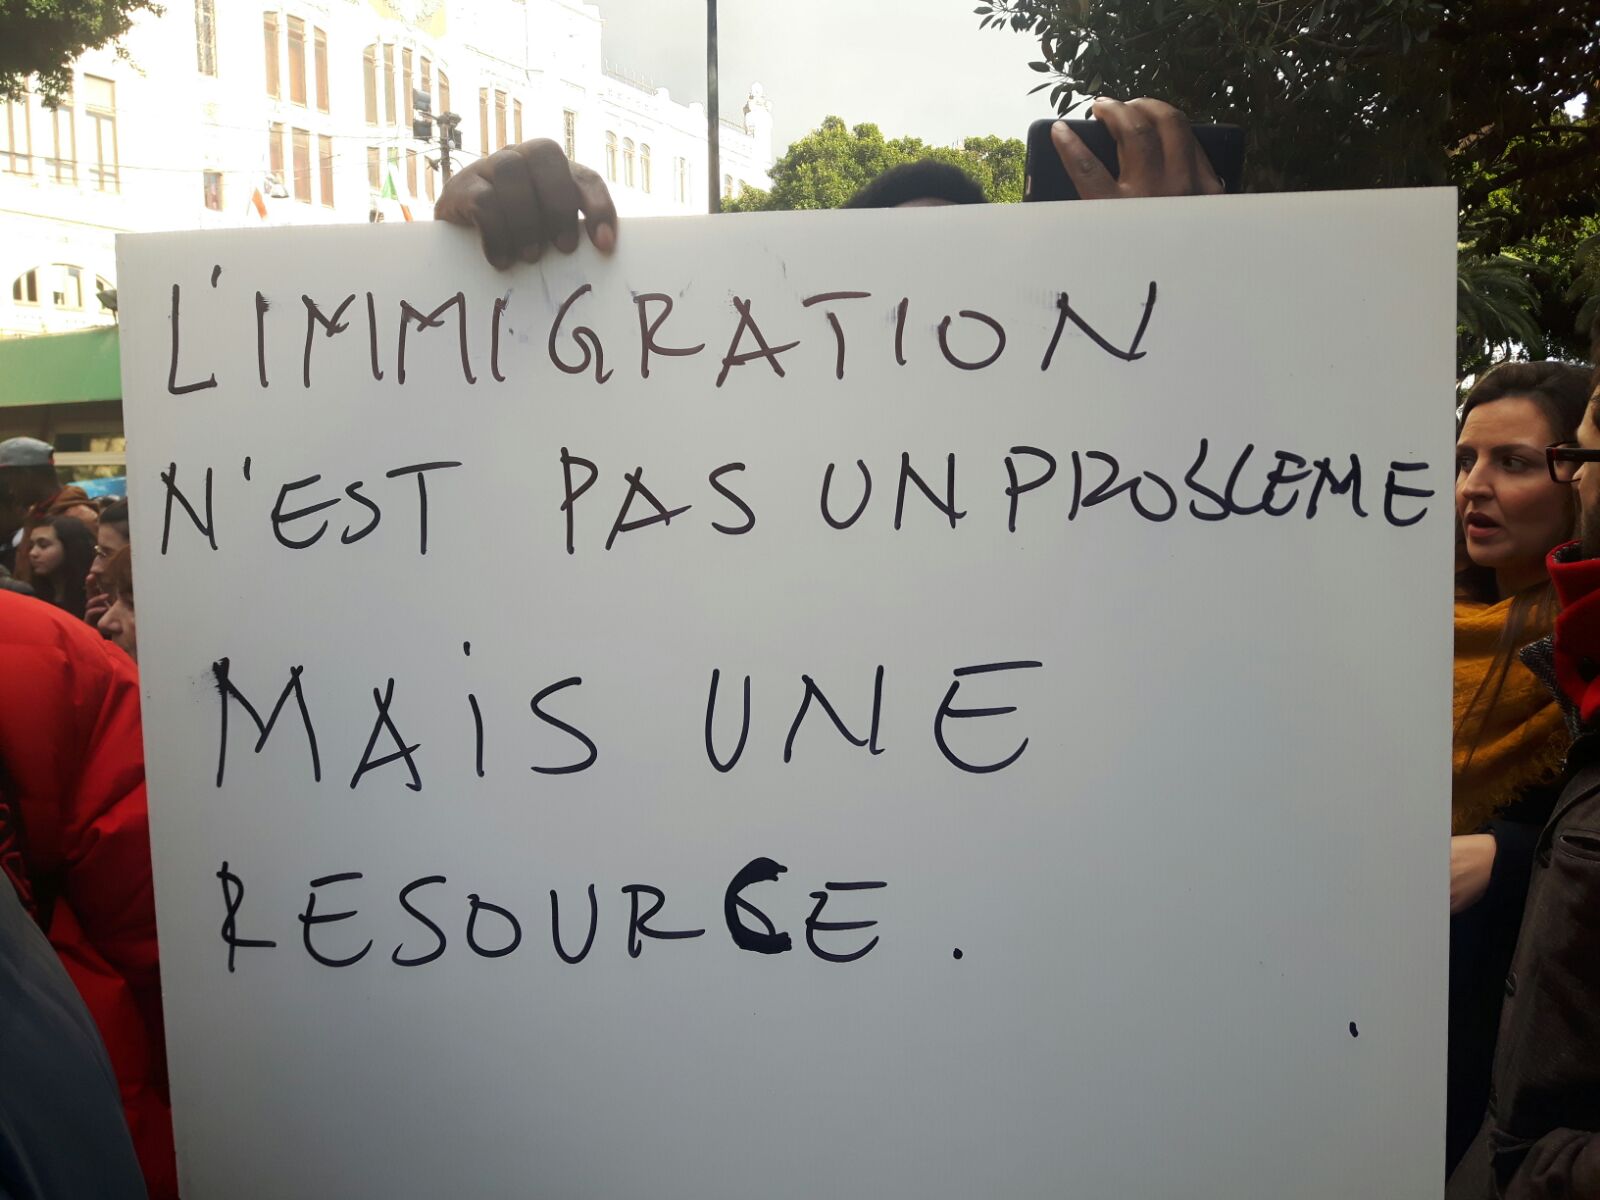 L'IMMIGRATION
N'EST PAS UN PROBLEME
MAiS UNE
RESOURCE.